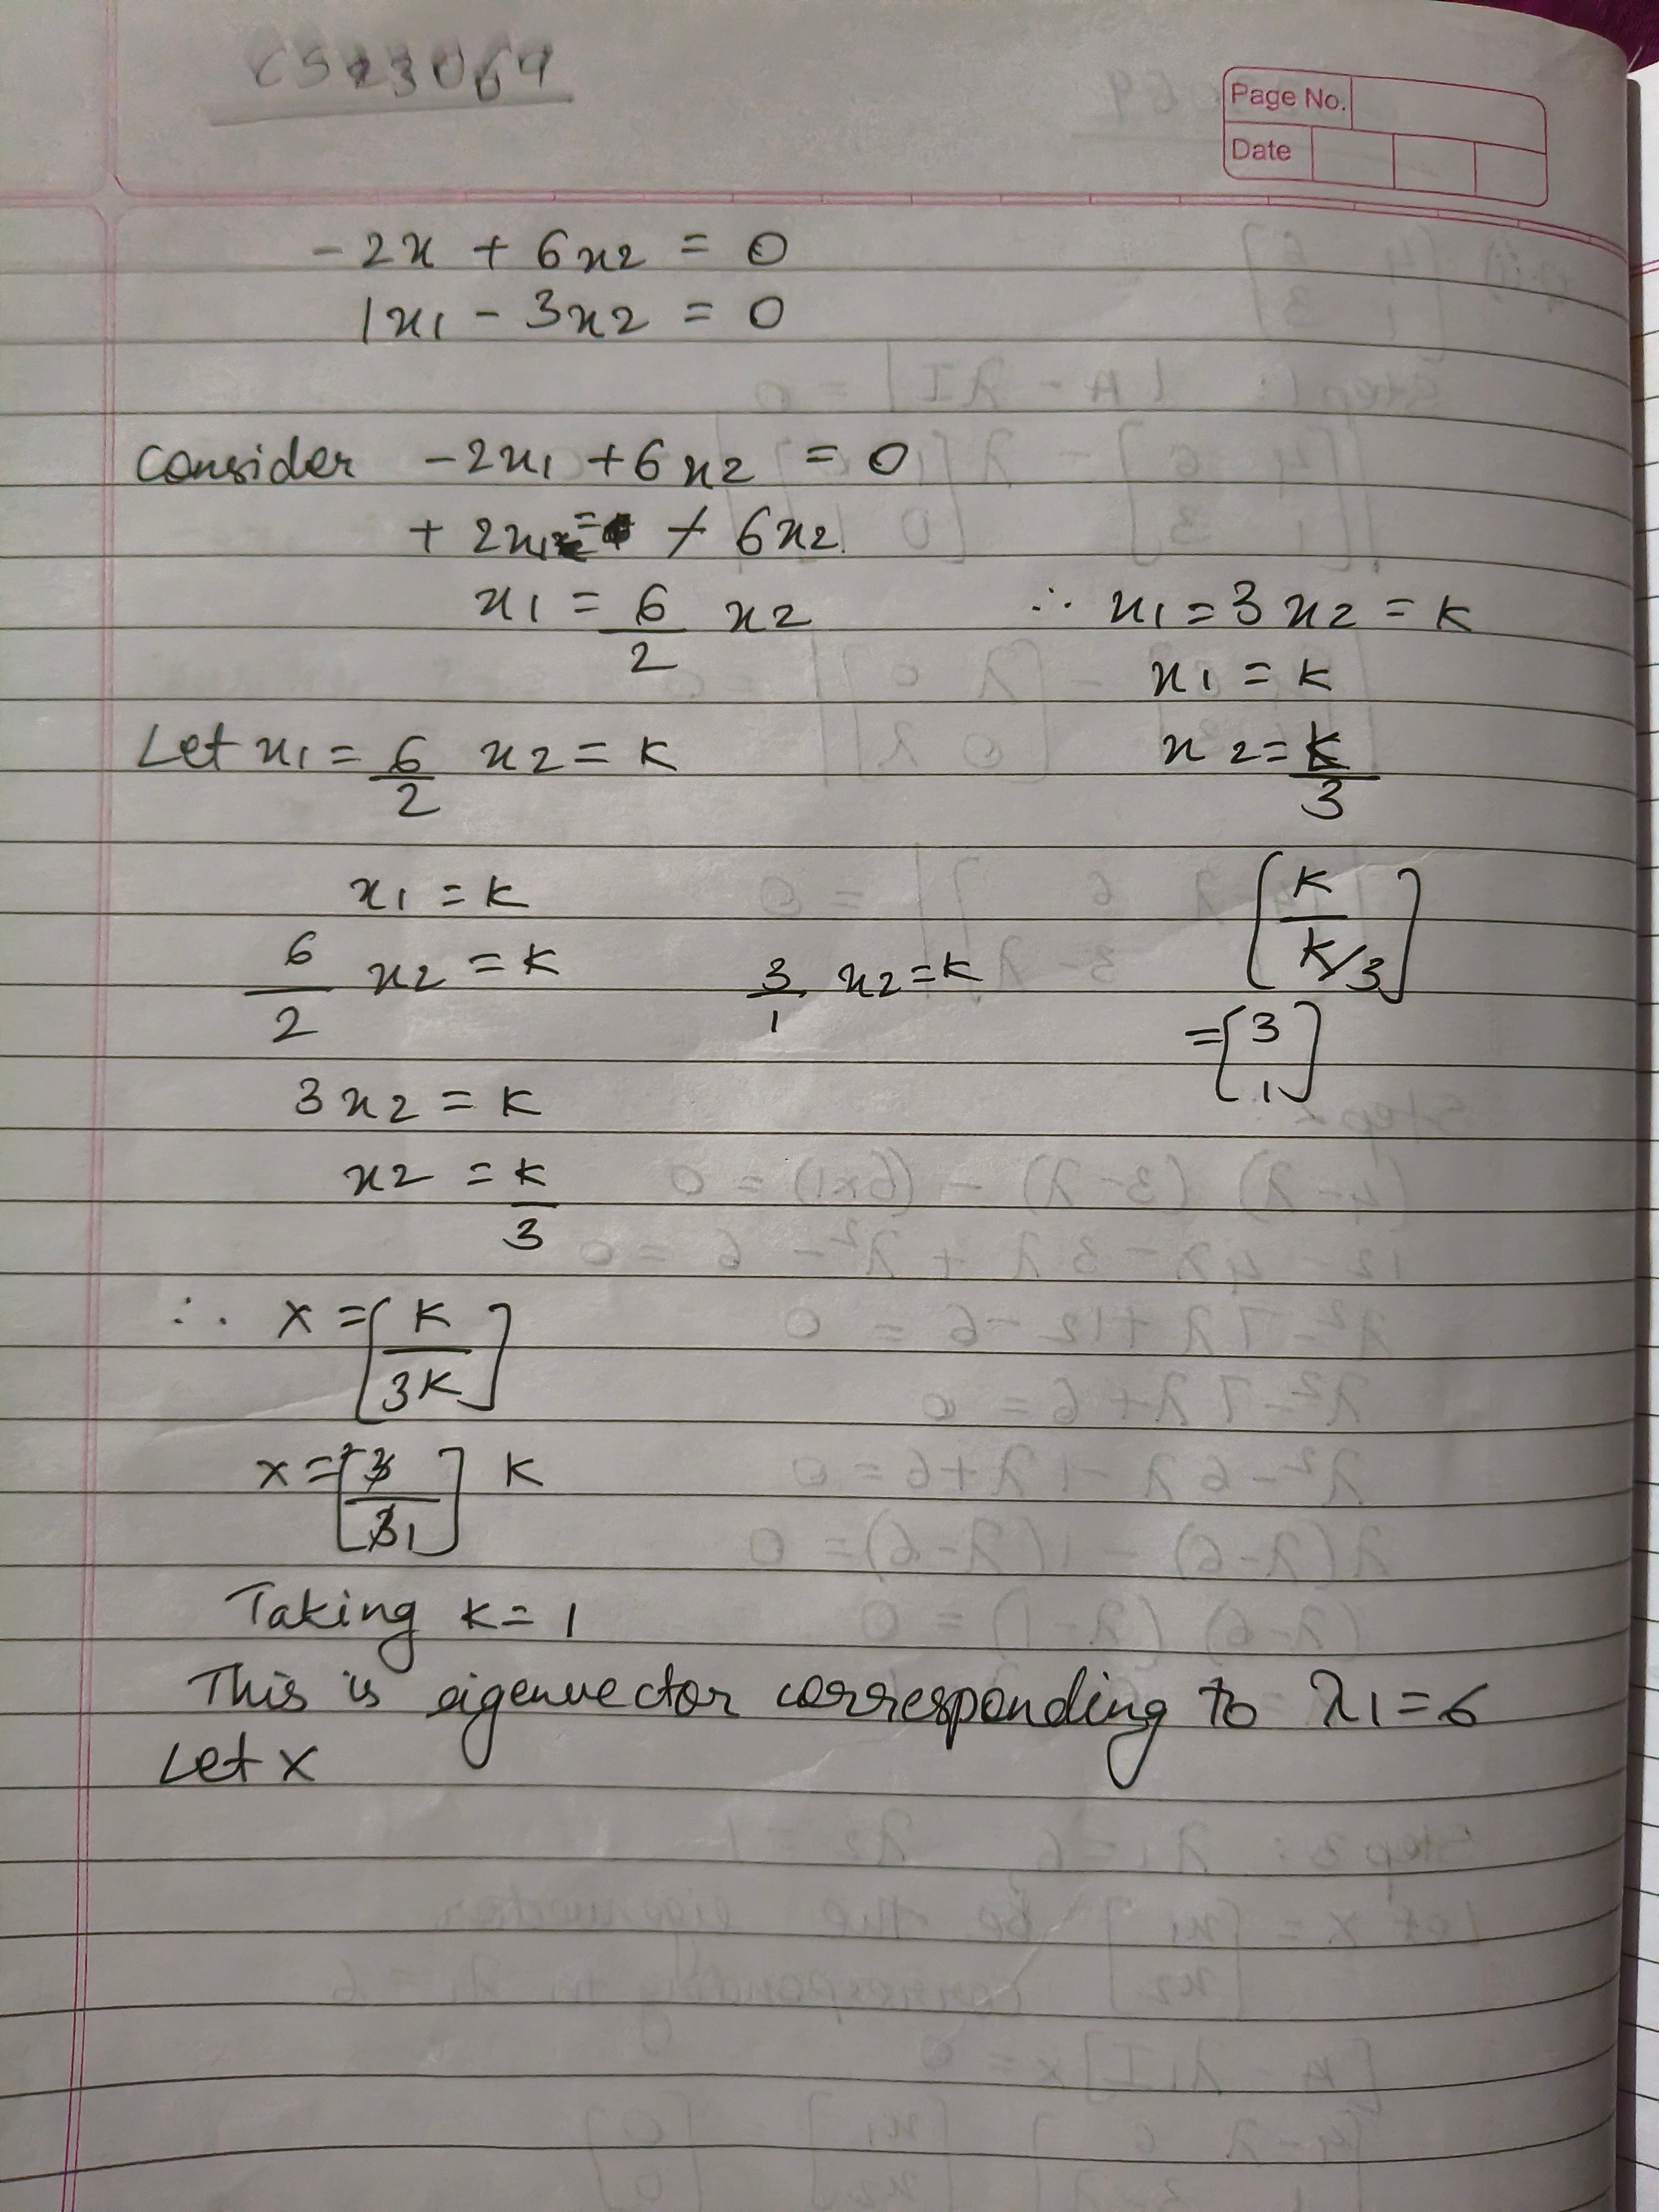 CS23064
Page No.
Date
-2x + 6x2 = 0
1x1 - 3x2 = 0
Consider -2x1 + 6x2 = 0
+ 2x1 = + 6x2
x1 = 6/2 x2 ∴ x1 = 3x2 = k
x1 = k
Let x1 = 6/2 x2 = k x2 = k/3
x1 = k [k / k/3]
6/2 x2 = k 3/1 x2 = k
= [3 1]
3x2 = k
x2 = k/3
∴ x = [k / 3k]
x = [3 / 1] k
Taking k = 1
This is eigenvector corresponding to λ1 = 6
Let x